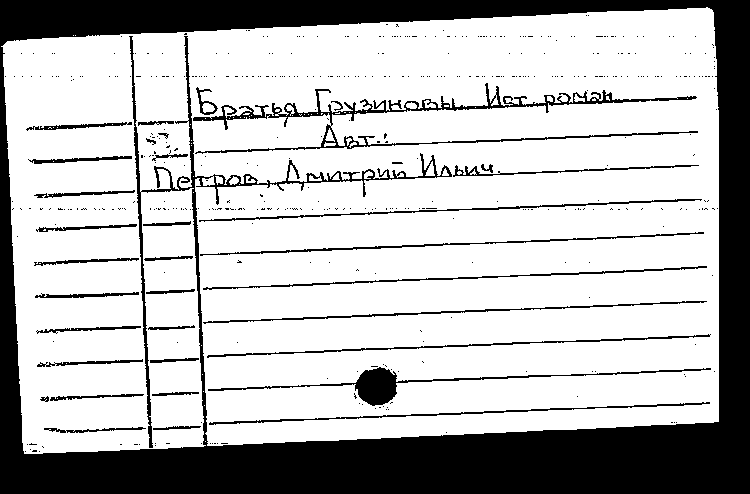 Братья Грузиновы. Ист. роман.
Авт.:
Петров, Дмитрий Ильич.